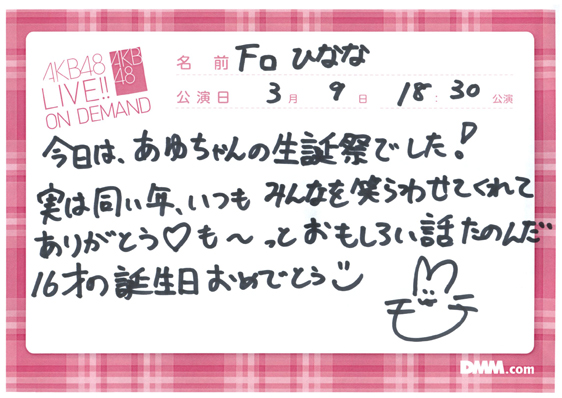 AKB48
LIVE!!
ON DEMAND
AKB
48
名 前 下口 ひなな
公演日 3月 9日 18:30公演
今日は、あゆちゃんの生誕祭でした!
実は同い年、いつも みんなを笑らわせてくれて
ありがとう♡も〜っと おもしろい話たのんだ
16才の誕生日おめでとう
モテ
DMM.com